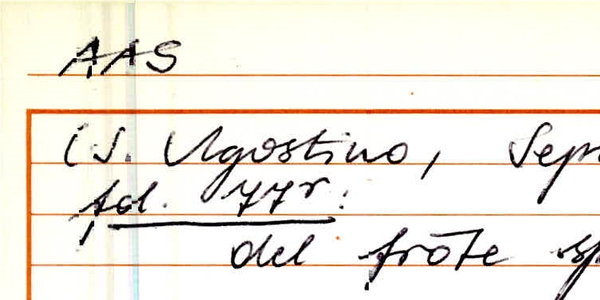 AAS
(S. Agostino, Sep
fol. 77r:
del frote